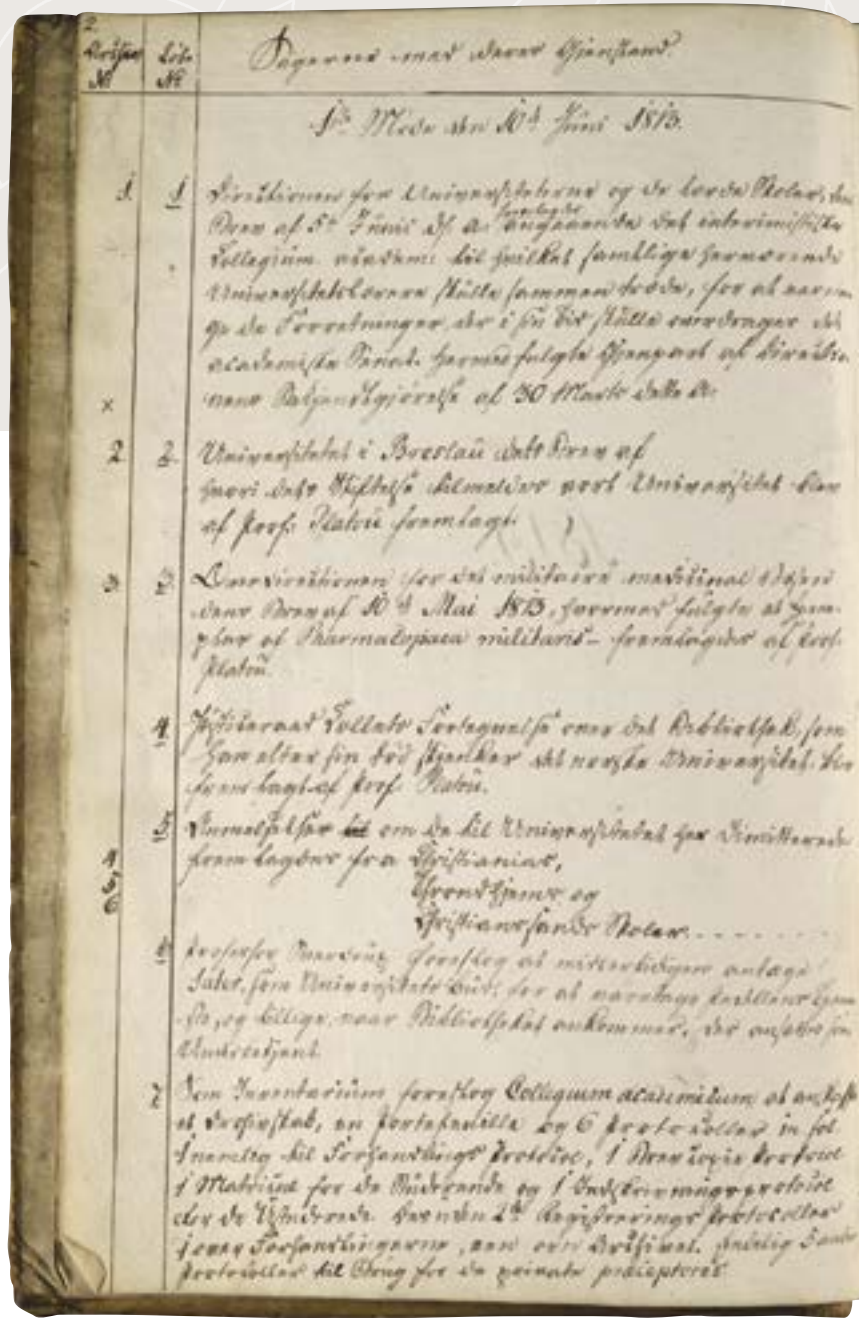 2.
Archiv No
Løb. No
Sagerne med deres Gjenstand.
1te Møde den 10de Junii 1813.
1 1 Directionen for Universiteterne og de lærde Skoler, dens
Brev af 5te Junii d. A. angaaende det interimistiske
Collegium academ: til hvilket samtlige herværende
Universitetslærere skulle sammentræde, for at
de Forretninger der i sin Tid skulle overdrages det
academiske Senat. Hermed fulgte Gjenpart af Directio-
nens Bekjendtgjørelse af 30 Marts dette A.
x
2 2. Universitetet i Breslau dets Brev af
hvori dets Stiftelse tilmeldes vort Universitet blev
af Prof. Platou fremlagt.
3 3. Overdirectionen for det militaire medicinal Væsen
dens Brev af 10de Mai 1813, hvormed fulgte et Exem-
plar af Pharmacopiaea militaris – fremlagdes af Prof.
Platou.
4. Justiceraad Colletts Fortegnelse over det Bibliothek, som
han efter sin Død skjenker det norske Universitet. blev
fremlagt af Prof. Platou.
5. Anmeldelser om de til Universitetet her Dimitterede
fremlagdes fra Christianias,
4 5 6
Throndhjems og
Christiansands Skoler.
6 Professor Sverdrup foreslog at midlertidigen antage
som Universitets Bud, for at varetage Pedellens
og tillige, naar Bibliotheket ankommer, der ansættes som
Underbetjent.
7 Som Inventarium foreslog Collegium academicum at anskaffe
et Archivskab, en Portefeuille og 6 Protocoller in fol.
1 nemlig til Forhandlings Protocol, 1 Brev Copie Protocol
1 Matricul for de Studerende og 1 Indskrivningsprotocol
for de Studerede. desuden 2de Registrerings Protocoller
1 over Forhandlingerne, een over Archivet. endelig
Protocoller til Brug for de private præceptores